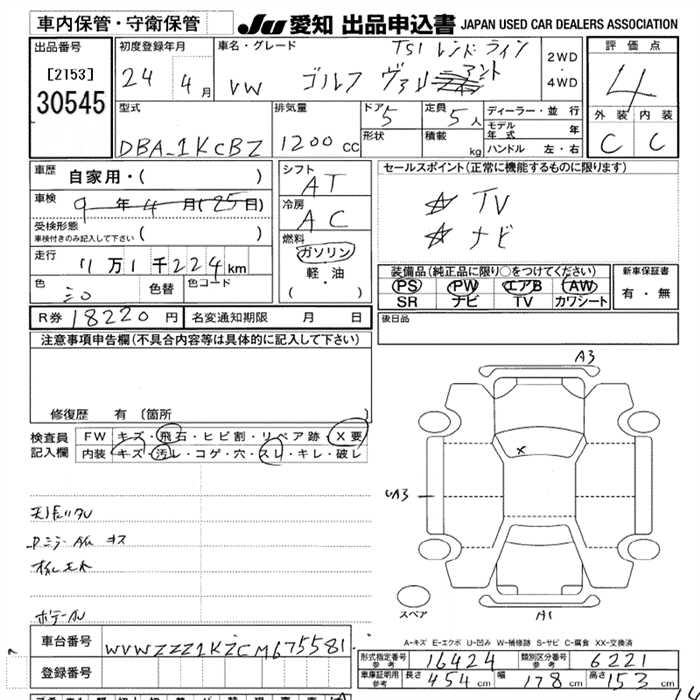 車内保管・守衛保管 JU 愛知 出品申込書 JAPAN USED CAR DEALERS ASSOCIATION
出品番号 初度登録年月 車名・グレード TSI トレンドライン 2WD・4WD 評価点
[2153] 24 4月 VW ゴルフ ヴァリアント 4
30545 型式 排気量 ドア 5 定員 5人 ディーラー・並行 外装 内装
DBA-1KCBZ 1200cc 形状 積載 kg モデル年式 年 C C
ハンドル 左・右
車歴 自家用・( ) シフト AT セールスポイント(正常に機能するものに限ります)
車検 9年4月(25日) 冷房 AC ☆ TV
受検形態 車検付きのみ記入して下さい ( ) 燃料 ☆ ナビ
走行 11万1千224km ガソリン 装備品(純正品に限り○をつけてください) 新車保証書
軽・油 PS PW エアB AW 有・無
色 シロ 色替 色コード ( ・ ) SR ナビ TV カワシート
R券 18220円 名変通知期限 月 日 後日品
注意事項申告欄(不具合内容等は具体的に記入して下さい)
修復歴 有 [箇所 ]
A3
検査員記入欄 FW キズ・飛石・ヒビ割・リペア跡・X要
内装 キズ・汚レ・コゲ・穴・スレ・キレ・破レ
X
UA3
スペア
A1
ボデール
A-キズ E-エクボ U-凹み W-補修跡 S-サビ C-腐食 XX-交換済
車台番号 WVWZZZ1KZCM675581
形式指定番号 参考 16424 類別区分番号 参考 6221
登録番号
車庫証明用 参考 長さ 454cm 幅 178cm 高さ 153cm